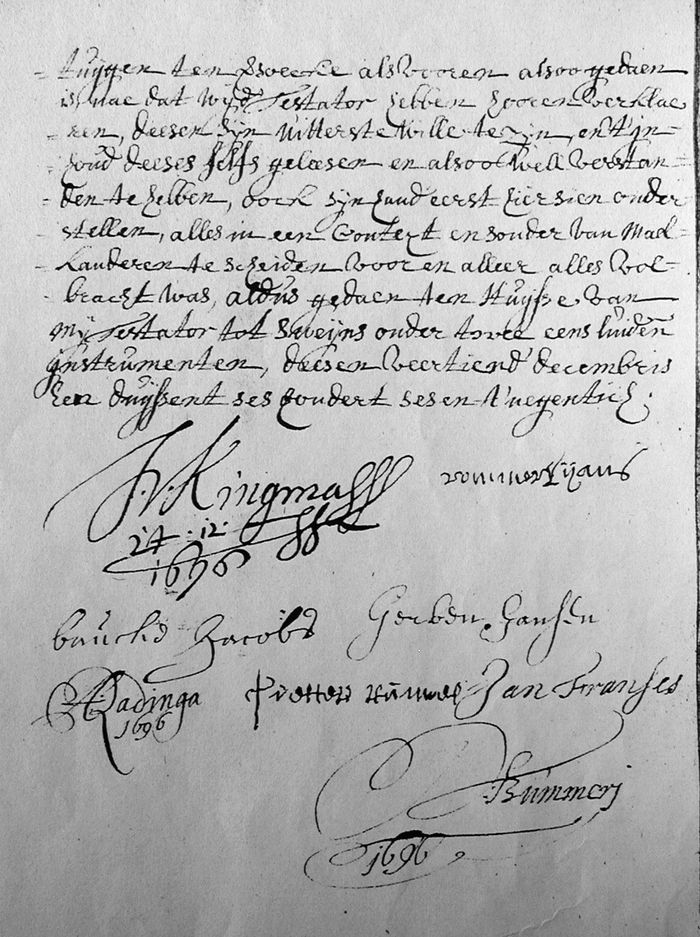 tuijgen ten versoecke als vooren alsoo gedaen
is nae dat wij Testator hebben hooren verklae
ren, deesen sijn uitterste wille te zijn, en 't in
houd deeses selfs geleesen en alsoo well verstan
den te hebben, oock sijn hand eerst hier sien onder
stellen, alles in een Context en sonder van mael
kanderen te scheiden voor en alleer alles vol
bracht was, aldus gedaen ten Huijse van
mij Testator tot Sweijns onder twee eens luiden
instrumenten, deesen veertiend decembris
Een duijsent ses hondert ses en Nuegentich.
Kingma rommert ijans
14 : 12 :
1696
bauckid Jacobs Gerben Hansen
Radinga Pietter Jan Franses
1696
Bummerj
1696